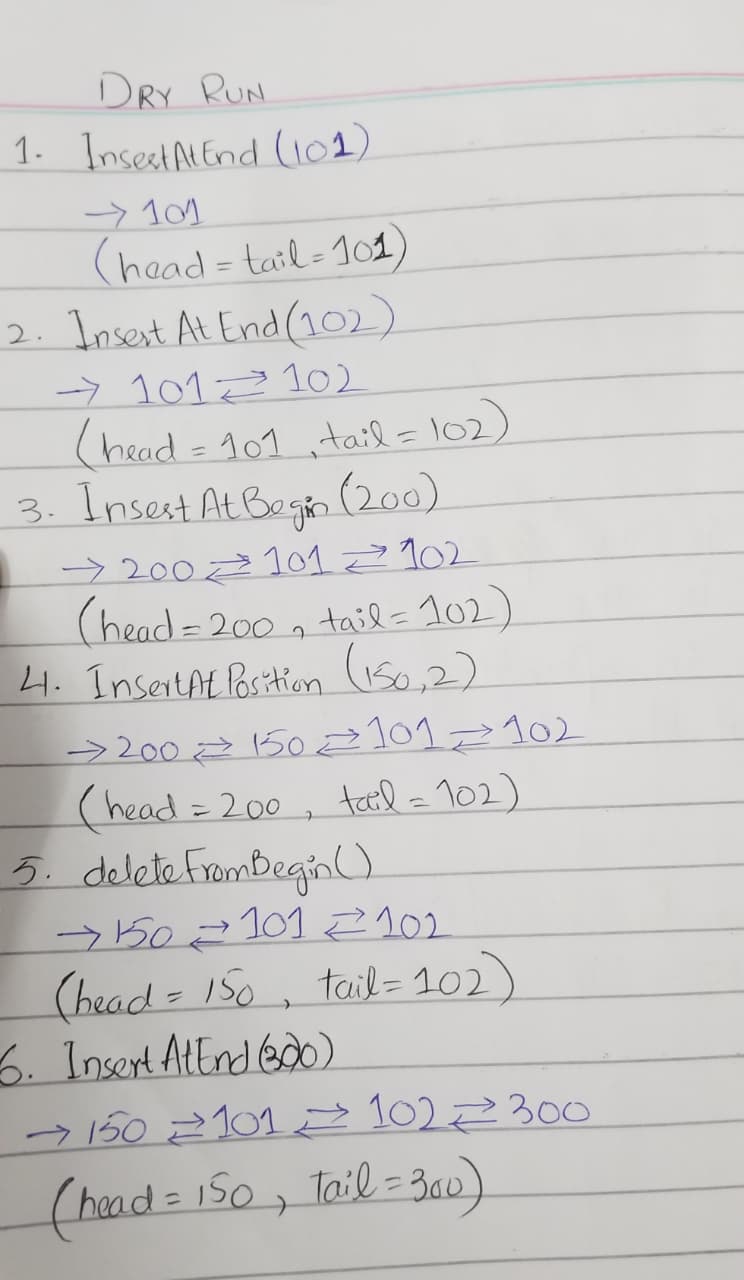 DRY RUN
1. InsertAtEnd (101)
→ 101
(head = tail = 101)
2. Insert At End (102)
→ 101 ⇄ 102
(head = 101 , tail = 102)
3. Insert At Begin (200)
→ 200 ⇄ 101 ⇄ 102
(head = 200 , tail = 102)
4. InsertAt Position (150,2)
→ 200 ⇄ 150 ⇄ 101 ⇄ 102
(head = 200 , tail = 102)
5. deleteFromBegin()
→ 150 ⇄ 101 ⇄ 102
(head = 150 , tail = 102)
6. Insert AtEnd (300)
→ 150 ⇄ 101 ⇄ 102 ⇄ 300
(head = 150 , Tail = 300)